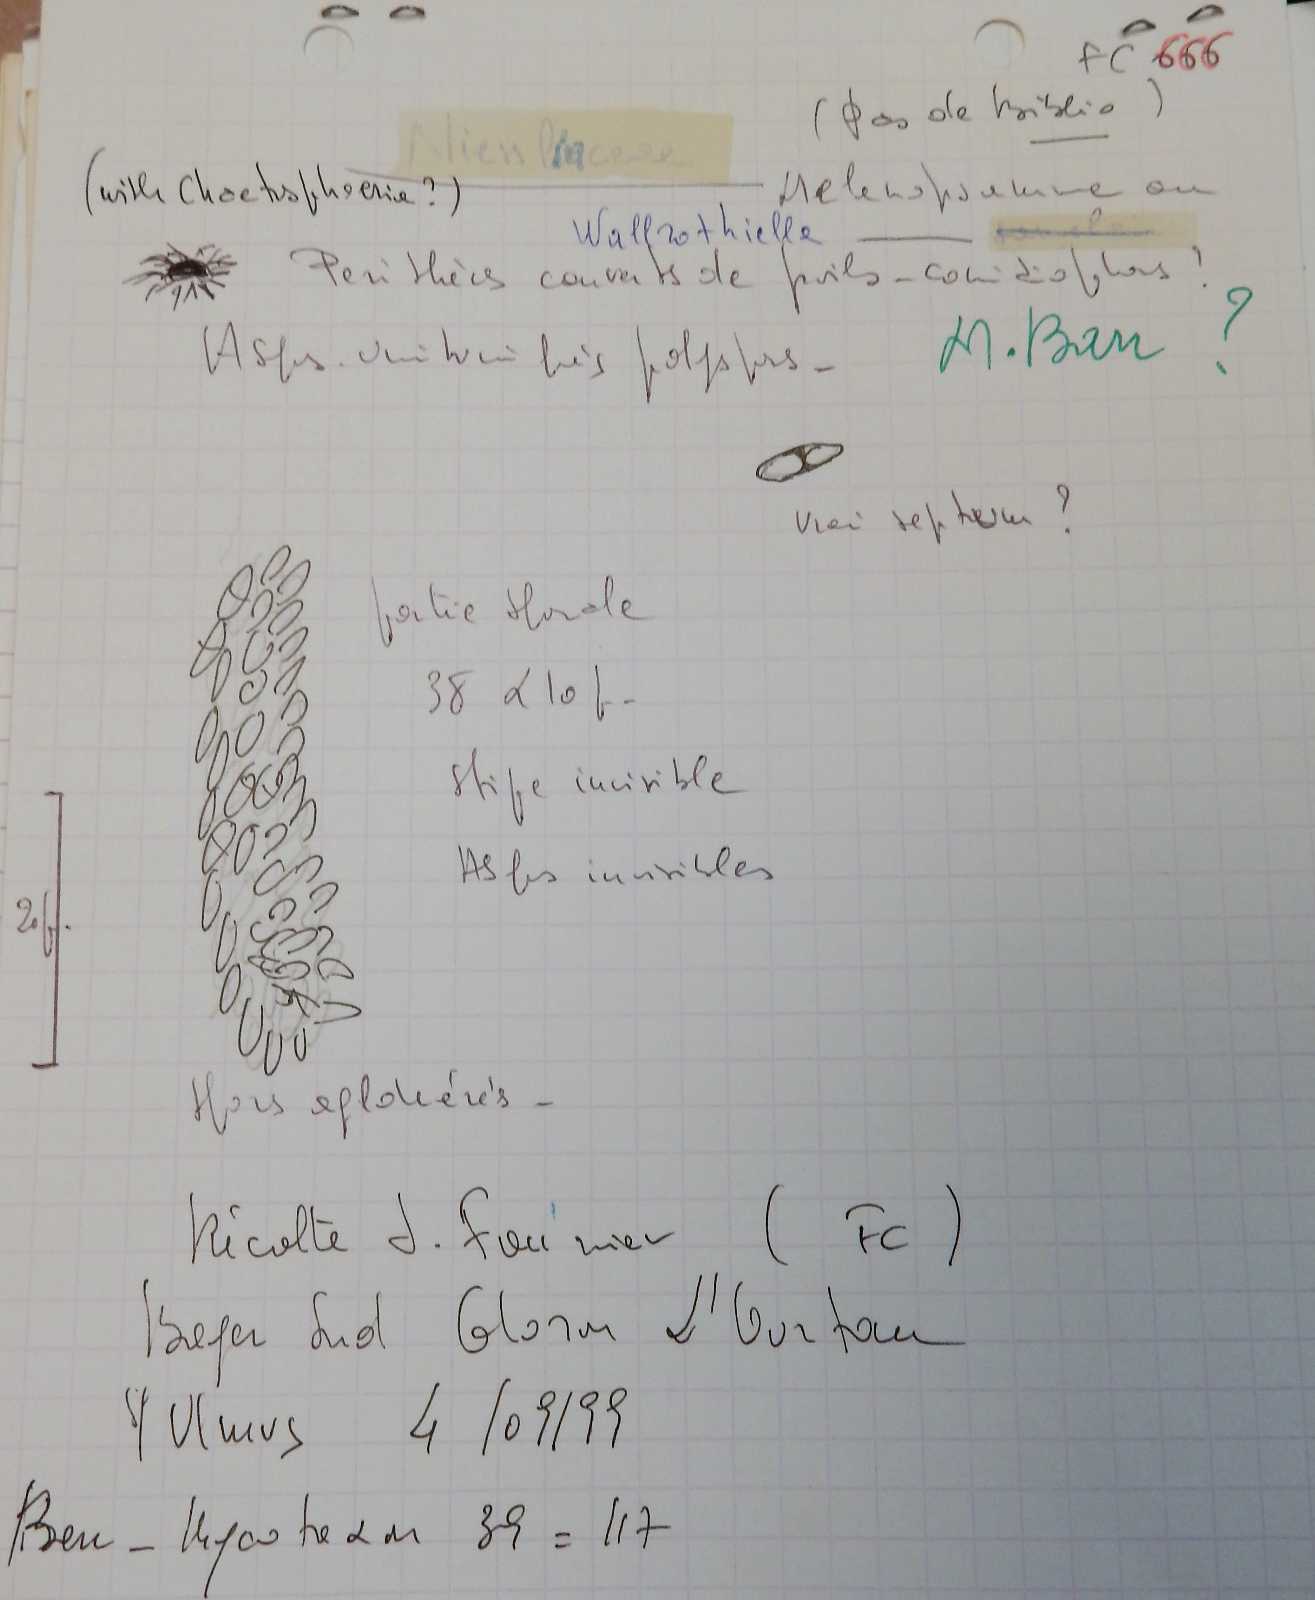 FC 666
(pas de biblio)
Niessliaceae
(with Chaetosphaeria?)
Melanopsamma ou
Wallrothiella
Perithèces couverts de poils-conidiophores!
Asques unituniqués polyspores -
M. Barr ?
vrai septum ?
partie sporale
38 x 10 µ -
stipe invisible
Asques invisibles
20 µ.
spores agglomérées -
Récolte J. Fournier (FC)
Berger Sud
Ulmus 4/09/99
Barr - Mycotaxon 39 = 117